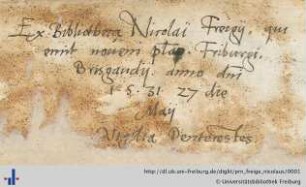 Ex Bibliotheca Nicolai Freigij, qui
emit novem plap. Friburgi.
Brisgaudij. anno dni
1531 27 die
Maij
http://dl.ub.uni-freiburg.de/diglit/prn_freigs_nicolaus/0001
© Universitätsbibliothek Freiburg